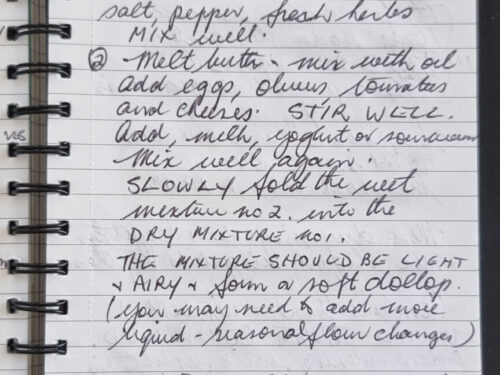 salt, pepper, fresh herbs
MIX well.
② Melt butter - mix with oil
add eggs, olives, tomatoes
and cheeses. STIR WELL.
Add, milk, yogurt or sourcream
Mix well again.
SLOWLY fold the wet
mixture no 2. into the
DRY MIXTURE NO 1.
THE MIXTURE SHOULD BE LIGHT
& AIRY & form a soft dollop.
(you may need to add more
liquid - seasonal flour changes)